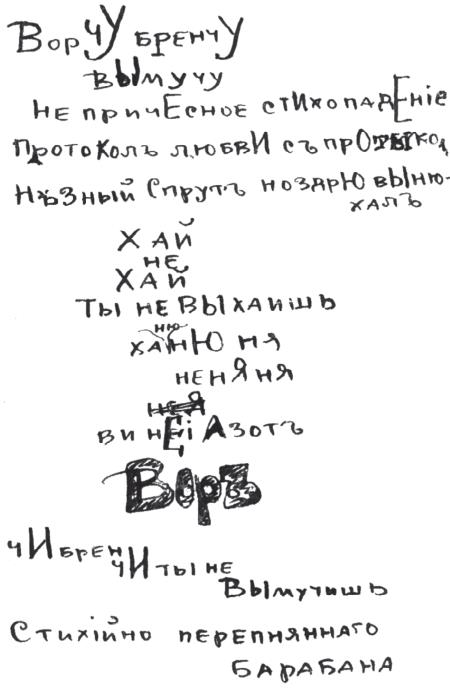 ВорчУ бренчУ
вЫмучу
не причЕсное стИхопадЕніе
Протоколъ любвИ съ
Нѣзный Спрутъ ноздрЮ вЫню-
халъ
Хай
не
Хай
Ты не выхаишь
ню
ханЮ ня
неняня
винЕі Азотъ
Воръ
чИбрен
чИ ты не
Вымучишь
Стихійно перепняннаго
барабана